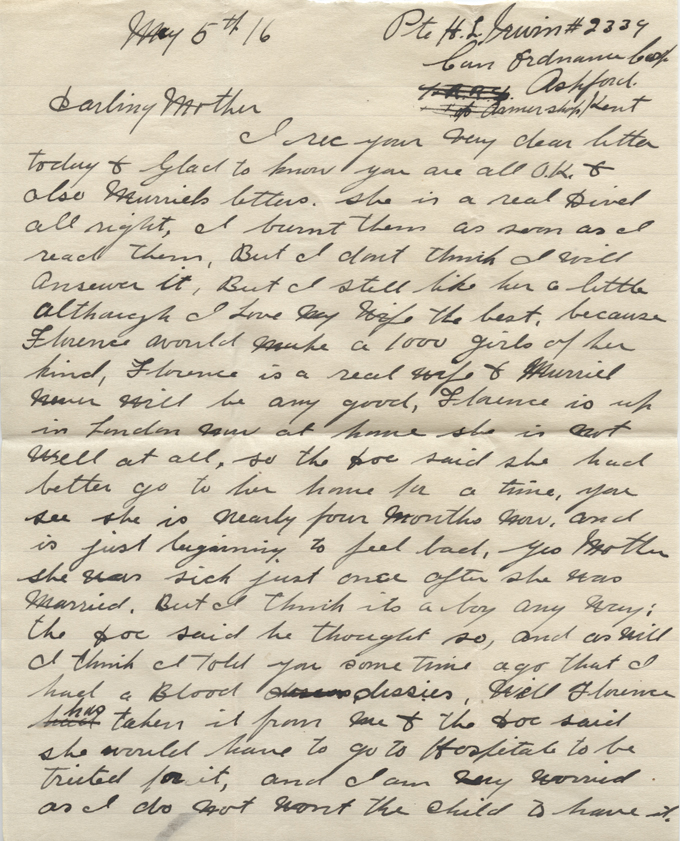 May 5th/16
Pte H. L. Irwin #2339
Can Ordnance Corp
Ashford.
Armershop/Kent
Darling Mother
I rec your very dear letter
today & Glad to know you are all O.K. &
also Murriels letters. she is a real Divel
all right, I burnt them as soon as I
read them, But I dont think I will
answer it, But I still like her a little
although I Love my Wife the best, because
Florence would make a 1000 girls of her
kind, Florence is a real wife & Murriel
never will be any good, Florence is up
in London now at home she is not
well at all, so the Doc said she had
better go to her home for a time, you
see she is nearly four months now, and
is just beginning to feel bad, yes Mother
she was sick just once after she was
married. But I think its a boy any way;
the Doc said he thought so, and as will
I think I told you some time ago that I
had a Blood dissies, Well Florence
has taken it from me & the Doc said
she would have to go to Hospital to be
trieted for it, and I am very worried
as I do not wont the child to have it.